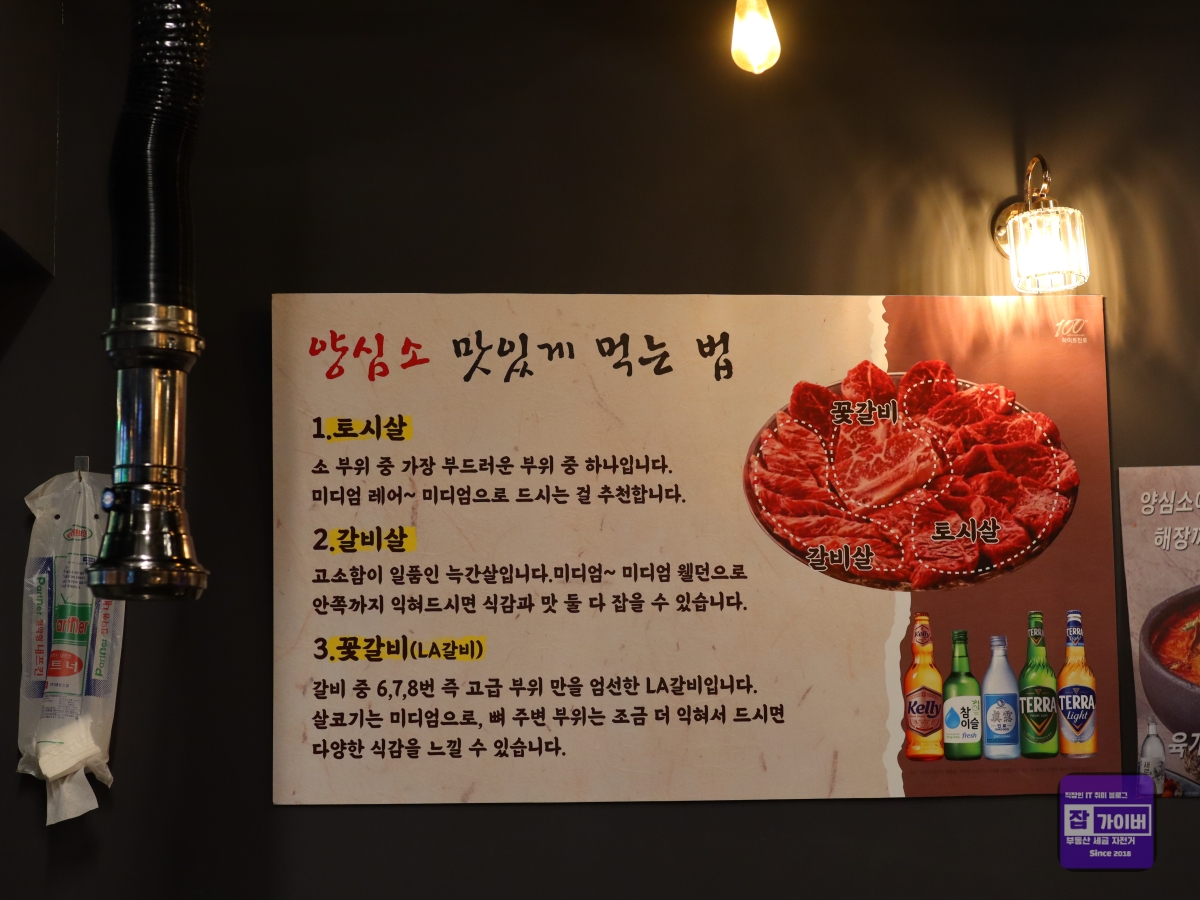 양심소 맛있게 먹는 법
1.토시살
소 부위 중 가장 부드러운 부위 중 하나입니다.
미디엄 레어~ 미디엄으로 드시는 걸 추천합니다.
2.갈비살
고소함이 일품인 늑간살입니다.미디엄~ 미디엄 웰던으로
안쪽까지 익혀드시면 식감과 맛 둘 다 잡을 수 있습니다.
3.꽃갈비(LA갈비)
갈비 중 6,7,8번 즉 고급 부위 만을 엄선한 LA갈비입니다.
살코기는 미디엄으로, 뼈 주변 부위는 조금 더 익혀서 드시면
다양한 식감을 느낄 수 있습니다.
100
하이트진로
꽃갈비
토시살
갈비살
Kelly
Kelly
참
이슬
fresh
TERRA
TERRA
TERRA
TERRA
light
양심소
해장
Panther
직장인 IT 취미 블로그
잡가이버
부동산 세금 자전거
Since 2018